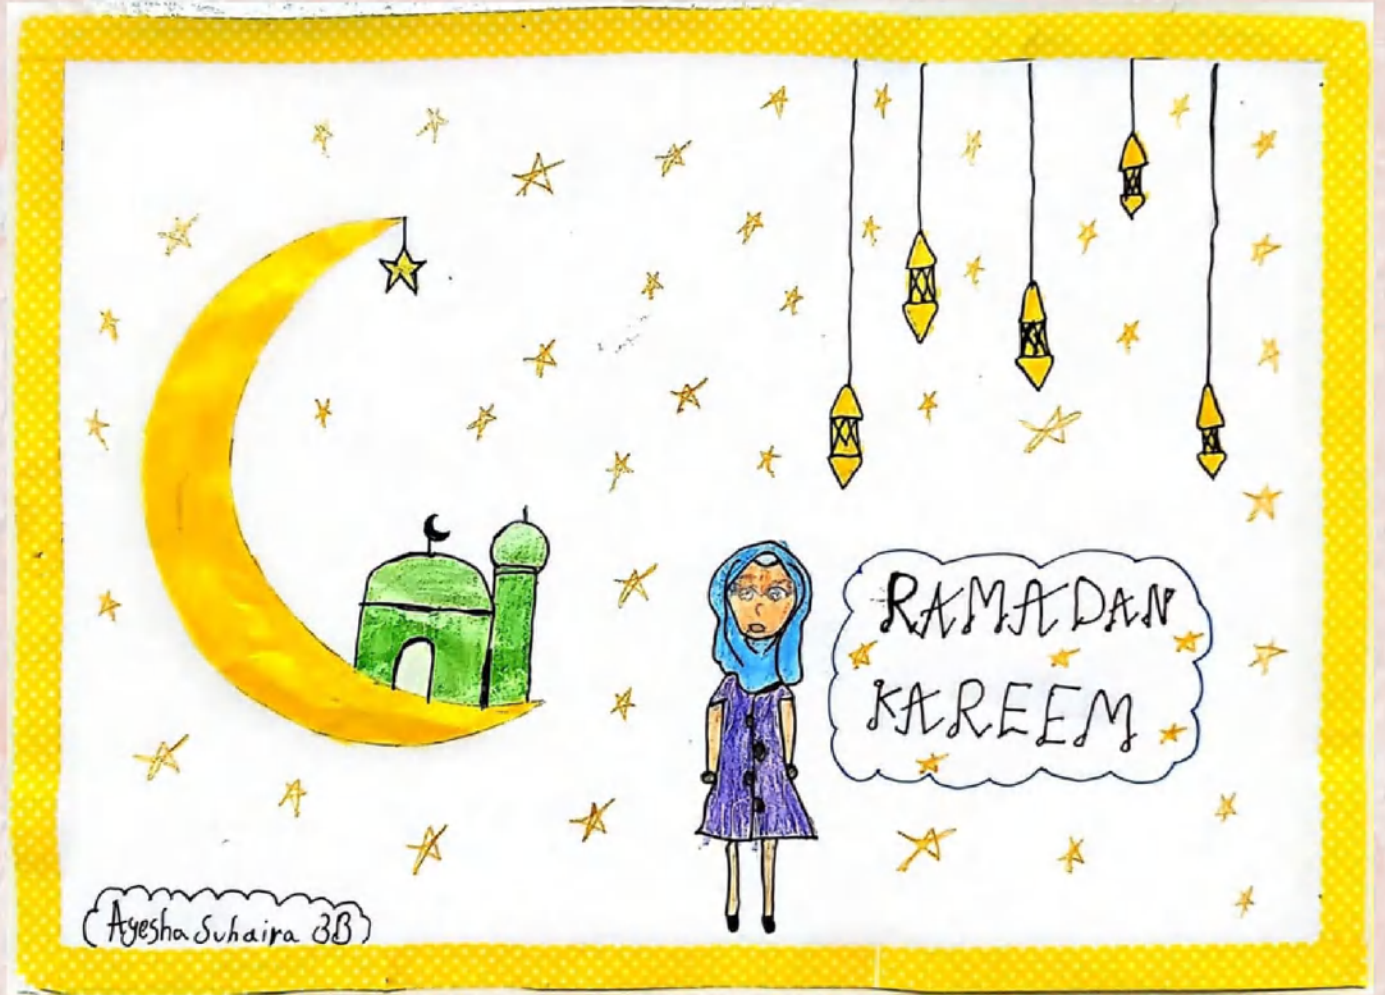 RAMADAN
KAREEM
Ayesha Suhaira 3B